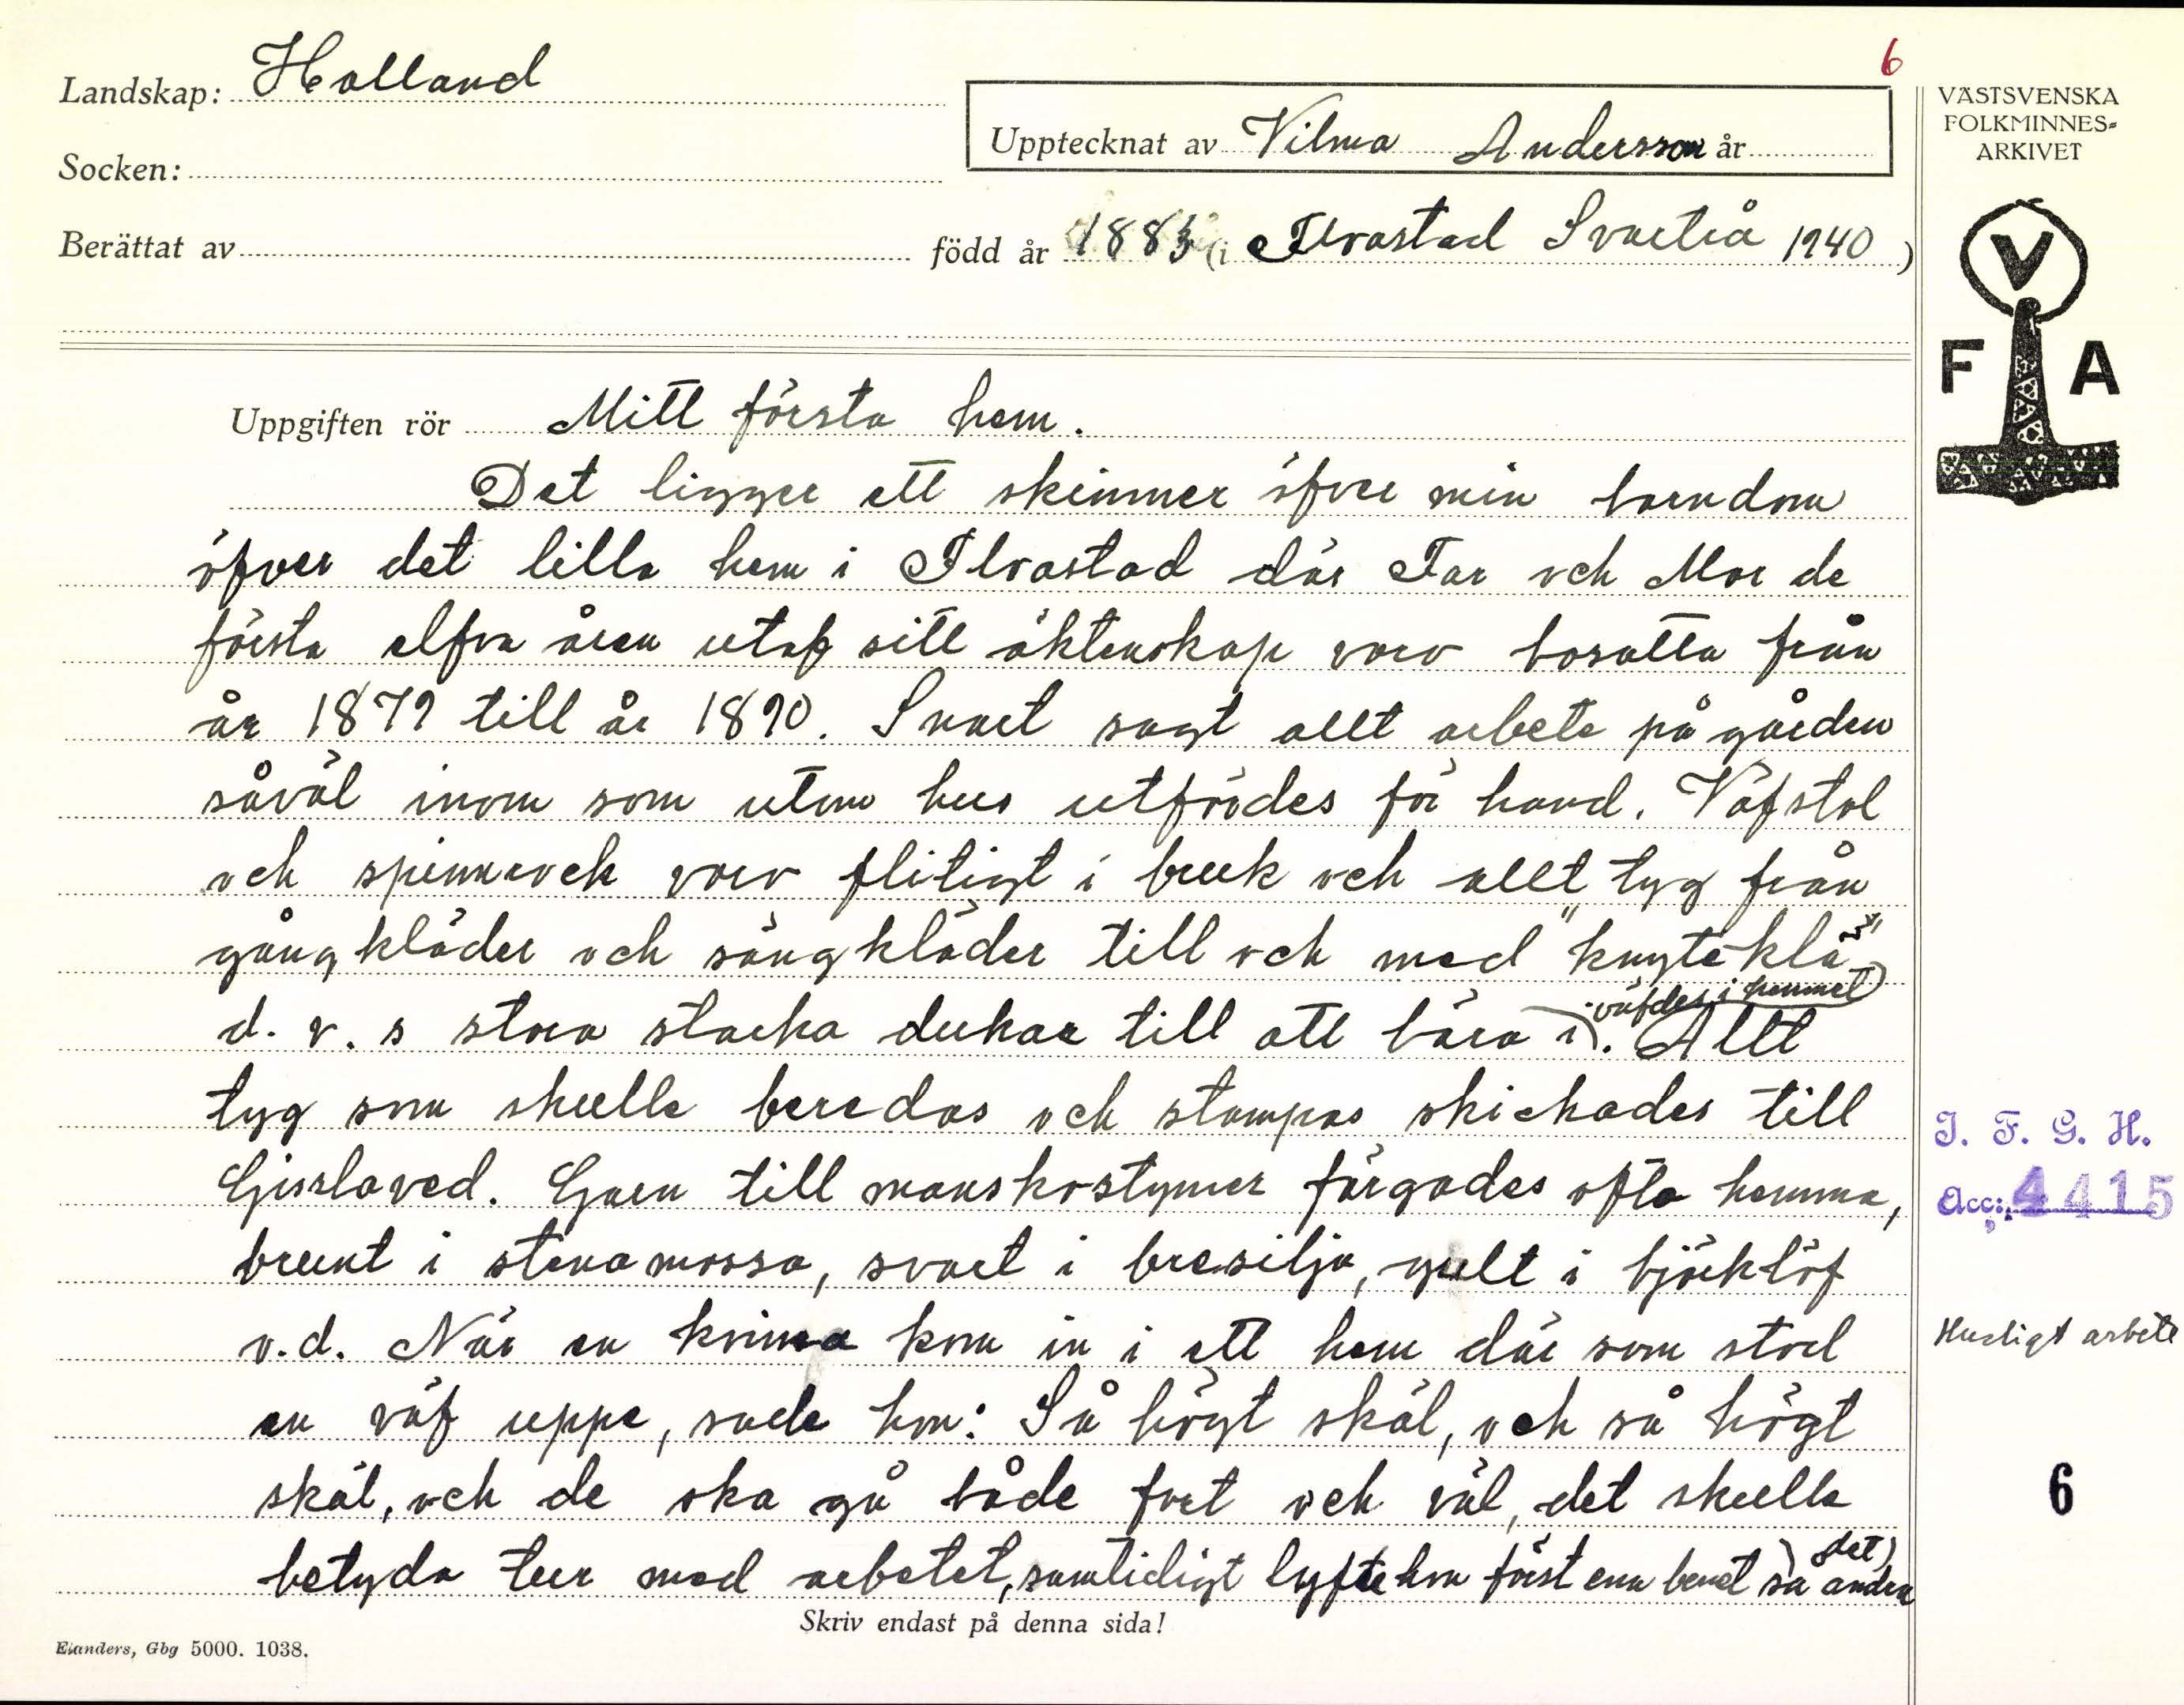 6
Landskap: Halland
Socken:
Upptecknat av Vilma Andersson år
Berättat av
född år 1883 (i Flvastad Svartrå 1940)
VÄSTSVENSKA
FOLKMINNES-
ARKIVET
V
F A
Uppgiften rör Mitt första hem.
Det ligger ett skimmer öfver min barndom
öfver det lilla hem i Flvastad där Far och Mor de
första elfva åren utaf sitt äktenskap voro bosatta från
år 1879 till år 1890. Snart sagt allt arbete på gården
såväl inom som utom hus utfördes för hand. Väfstol
och spinnrock voro flitigt i bruk och allt tyg från
gångkläder och sängkläder till och med "knyteklä"
d. v. s stora starka dukar till att bära i väfdes i hemmet. Allt
tyg som skulle beredas och stampas skickades till
Gisslaved. Garn till manskostymer färgades ofta hemma,
brunt i stenamossa, svart i bresilja, gult i björklöf
o.d. När en kvinna kom in i ett hem där som stod
en väf uppe, sade hon: Så högt skäl, och så högt
skäl, och de ska gå både fort och väl, det skulle
betyda tur med arbetet, samtidigt lyfte hon först ena benet så det andra
Skriv endast på denna sida!
Elanders, Gbg 5000. 1038.
I. F. G. H.
Acc: 4415
Husligt arbete
6